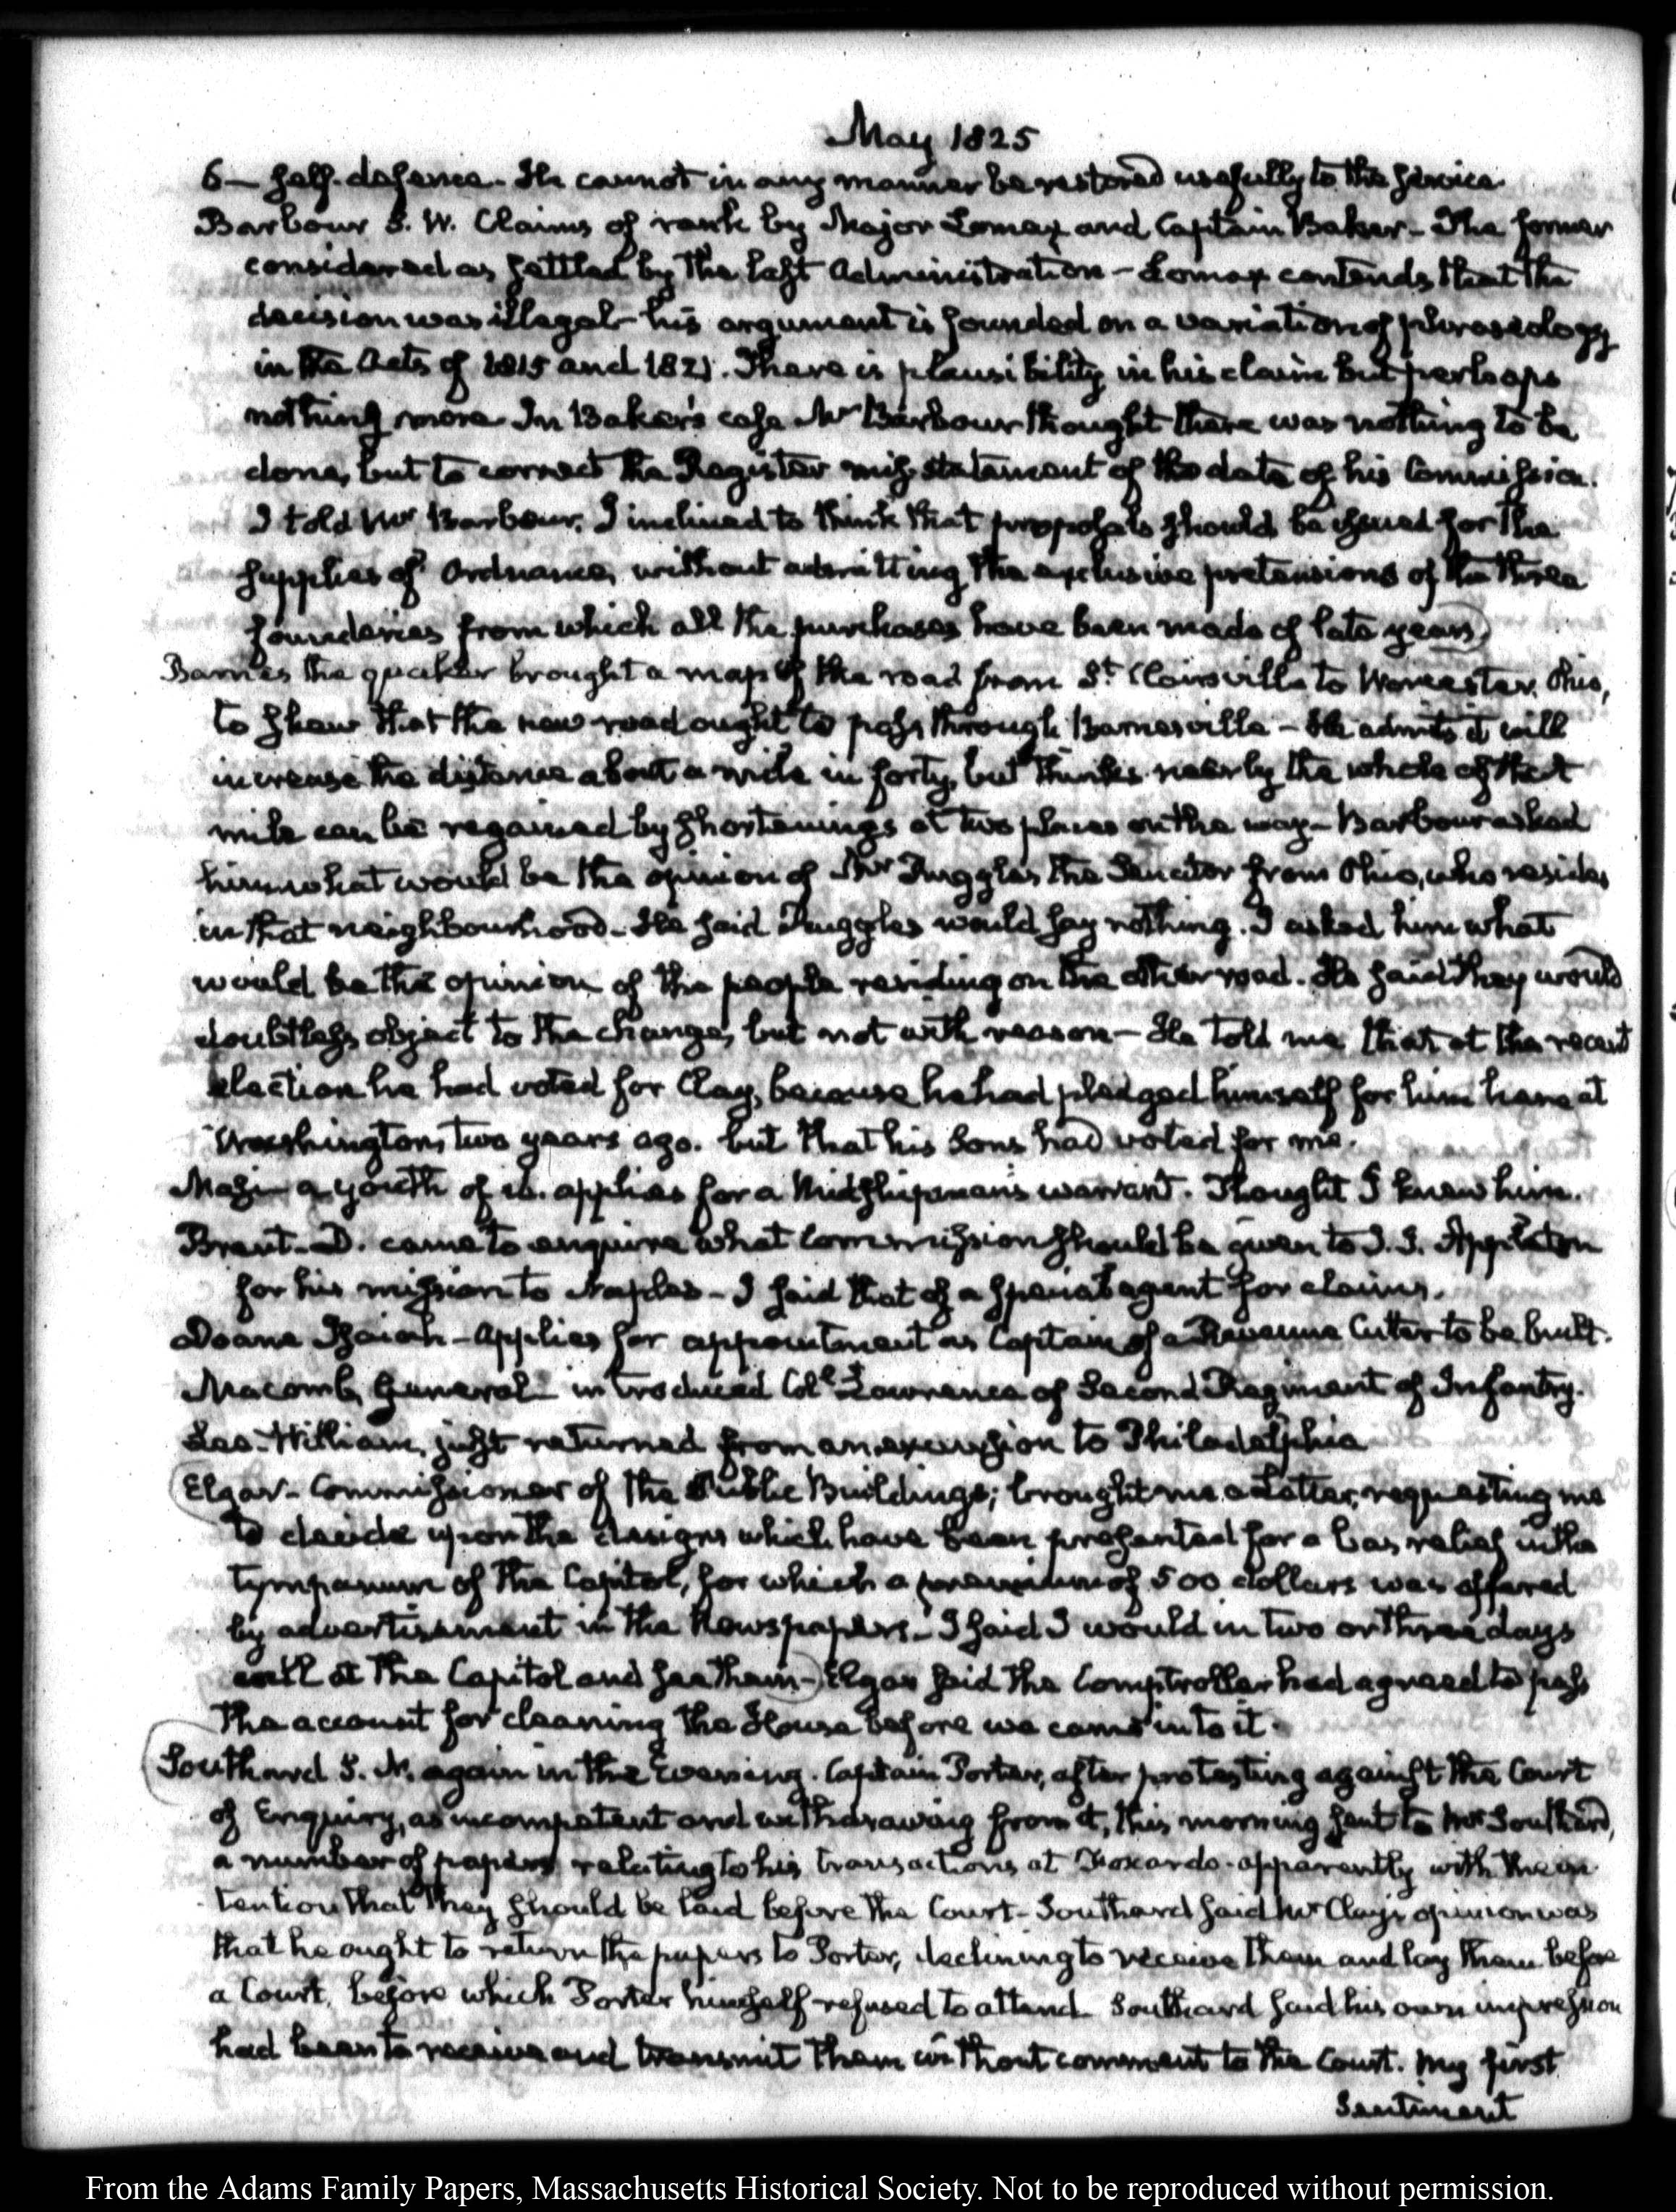 May 1825
6— self-defence. He cannot in any manner be restored usefully to the service.
Barbour S. W. Claims of rank by Major Lomax and Captain Baker— The former
considered as settled by the last Administration— Lomax contends that the
decision was illegal— his argument is founded on a variation of phraseology
in the Acts of 1815 and 1821. There is plausibility in his claim but perhaps
nothing more. In Baker's case Mr Barbour thought there was nothing to be
done, but to correct the Register mis-statement of the date of his Commission.
I told Mr Barbour, I inclined to think that proposals should be issued for the
supplies of Ordnance, without admitting the exclusive pretensions of the three
founderies from which all the purchases have been made of late years)
Barnes the quaker brought a map of the road from St. Clairsville to Worcester, Ohio,
to shew that the new road ought to pass through Barnesville— He admits it will
increase the distance about a mile in forty, but thinks nearly the whole of that
mile can be regained by shortenings at two places on the way— Barbour asked
him what would be the opinion of Mr Ruggles the Senator from Ohio, who resides
in that neighbourhood— He said Ruggles would say nothing. I asked him what
would be the opinion of the people residing on the other road. He said they would
doubtless object to the change, but not with reason— He told me that at the recent
election he had voted for Clay, because he had pledged himself for him here at
Washington, two years ago. but that his Sons had voted for me.
a youth of applies for a Midshipman's warrant. Thought I knew him.
Brent— D. came to enquire what Commission should be given to J. J. Appleton
for his mission to Naples— I said that of a special agent for claims.
Doane Isaiah— Applies for appointment as Captain of a Revenue Cutter to be built.
Macomb, General— introduced Coll. Lawrence of Second Regiment of Infantry.
Lee. William, just returned from an excursion to Philadelphia
(Elgar— Commissioner of the Public Buildings; brought me a Letter, requesting me
to decide upon the designs which have been presented for a bas relief in the
tympanum of the Capitol, for which a premium of 500 dollars was offered
by advertisement in the Newspapers— I said I would in two or three days
call at the Capitol and see them—) Elgar said the Comptroller had agreed to pass
the account for cleaning the House before we came into it.
(Southard S. N. again in the Evening. Captain Porter, after protesting against the Court
of Enquiry, as incompetent and withdrawing from it, this morning sent to Mr Southard,
a number of papers relating to his transactions at Foxardo. apparently with the in-
tention that they should be laid before the Court— Southard said Mr Clay's opinion was
that he ought to return the papers to Porter, declining to receive them and lay them before
a Court, before which Porter himself refused to attend. Southard said his own impression
had been to receive and transmit them without comment to the Court. My first
Sentiment
From the Adams Family Papers, Massachusetts Historical Society. Not to be reproduced without permission.